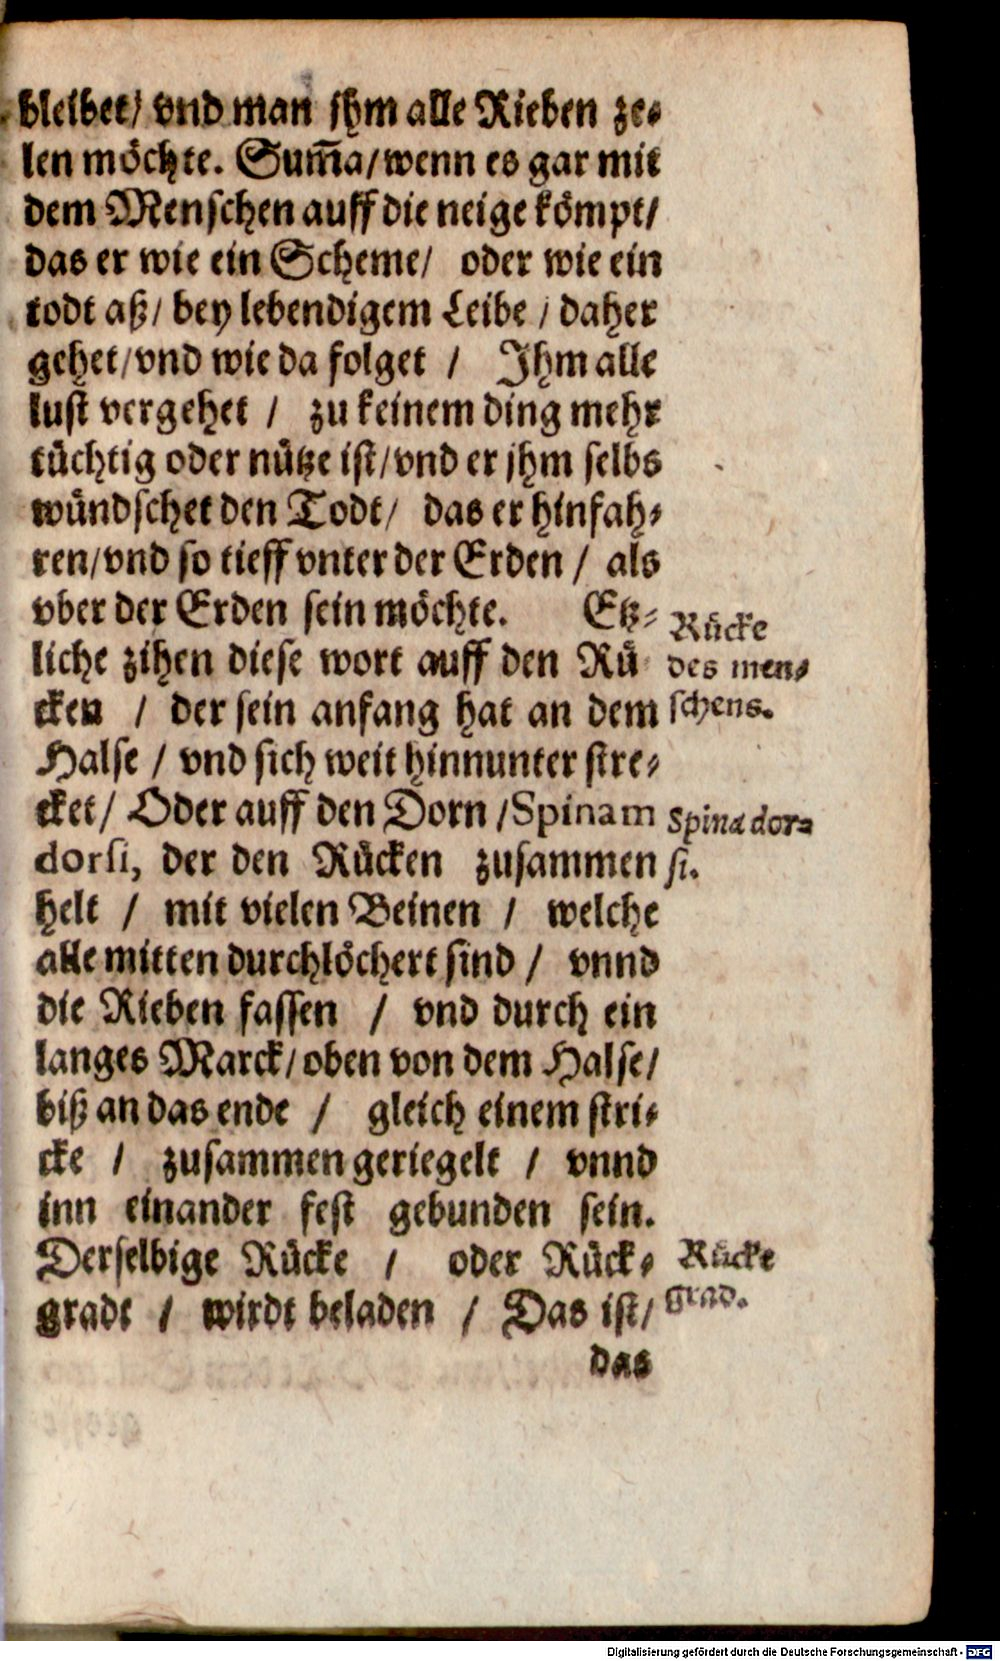 bleibet/ vnd man jhm alle Rieben ze-
len möchte. Sum̃a/ wenn es gar mit
dem Menschen auff die neige kömpt/
das er wie ein Scheme/ oder wie ein
todt aß/ bey lebendigem Leibe / daher
gehet/ vnd wie da folget / Ihm alle
lust vergehet / zu keinem ding mehr
tüchtig oder nütze ist/ vnd er jhm selbs
wündschet den Todt/ das er hinfah-
ren/ vnd so tieff vnter der Erden / als
vber der Erden sein möchte. Etz-
liche zihen diese wort auff den Rü
cken / der sein anfang hat an dem
Halse / vnd sich weit hinnunter stre-
cket/ Oder auff den Dorn / Spinam
dorsi, der den Rücken zusammen
helt / mit vielen Beinen / welche
alle mitten durchlöchert sind / vnnd
die Rieben fassen / vnd durch ein
langes Marck/ oben von dem Halse/
biß an das ende / gleich einem stri-
cke / zusammen geriegelt / vnnd
inn einander fest gebunden sein.
Derselbige Rücke / oder Rück-
gradt / wirdt beladen / Das ist/
das
Rücke
des men-
schens.
Spina dor-
si.
Rücke
grad.
Digitalisierung gefördert durch die Deutsche Forschungsgemeinschaft - DFG